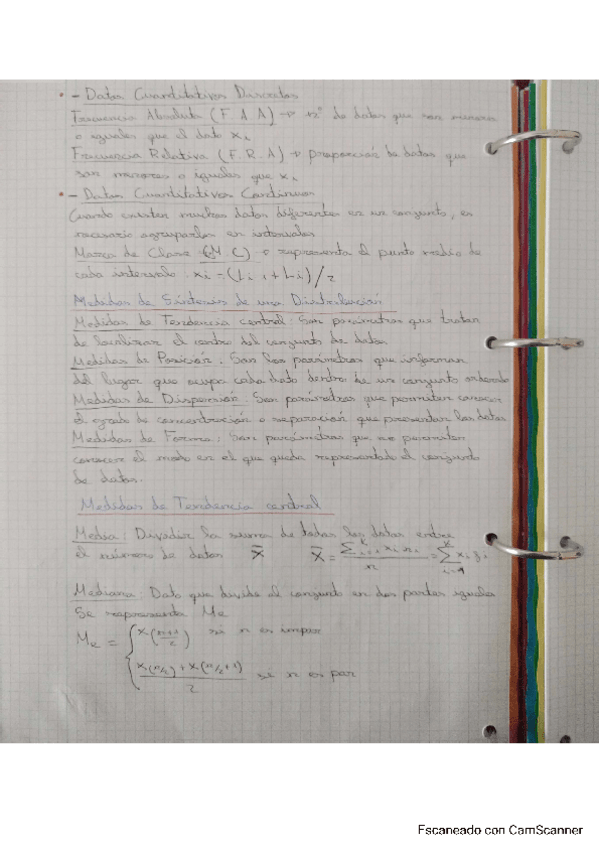 - Datos Cuantitativos Discretos
Frecuencia Absoluta (F.A.A) → nº de datos que son menores
o iguales que el dato xi
Frecuencia Relativa (F.R.A) → proporción de datos que
son menores o iguales que xi
- Datos Cuantitativos Continuos
Cuando existen muchos datos diferentes en un conjunto, es
necesario agruparlos en intervalos
Marca de Clase (M.C) → representa el punto medio de
cada intervalo. xi = (Li-1 + Li)/2
Medidas de Síntesis de una Distribución
Medidas de Tendencia central: Son parámetros que tratan
de localizar el centro del conjunto de datos
Medidas de Posición: Son los parámetros que informan
del lugar que ocupa cada dato dentro de un conjunto ordenado
Medidas de Dispersión: Son parámetros que permiten conocer
el grado de concentración o separación que presentan los datos
Medidas de Forma: Son parámetros que nos permiten
conocer el modo en el que queda representado el conjunto
de datos.
Medidas de Tendencia central
Media: Dividir la suma de todos los datos entre
el número de datos x̄ x̄ = Σ xi ni / n = Σ xi fi
Mediana: Dato que divide al conjunto en dos partes iguales
Se representa Me
Me = { x((n+1)/2) si n es impar
(x(n/2) + x(n/2+1))/2 si n es par
Escaneado con CamScanner